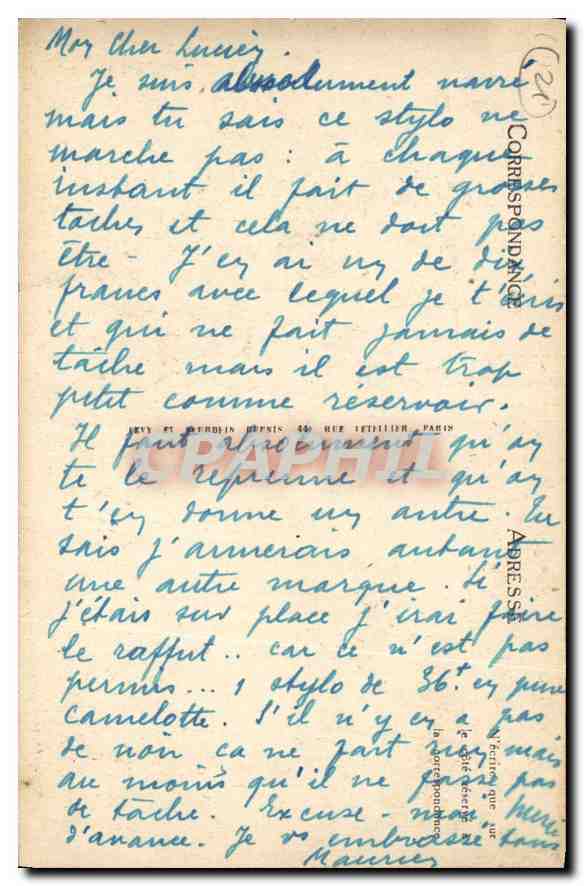 Mon Cher Lucien.
Je suis absolument navré
mais tu sais ce stylo ne
marche pas : à chaque
instant il fait de grosses
taches et cela ne doit pas
être - J'en ai un de dix
francs avec lequel je t'écris
et qui ne fait jamais de
tâche mais il est trop
petit comme réservoir.
Il faut absolument qu'on
te le reprenne et qu'on
t'en donne un autre. Tu
sais j'aimerais autant
une autre marque. Si
j'étais sur place j'irai faire
le raffut.. car ce n'est pas
permis... 1 stylo de 36f en pure
camelotte. S'il n'y en a pas
de noir ca ne fait rien mais
au moins qu'il ne fasse pas
de tache. Excuse-moi, Merci
d'avance. Je vs embrasse tous
Maurice
(20)
CORRESPONDANCE
ADRESSE
LEVY ET NEURDEIN REUNIS 44, RUE LETELLIER, PARIS
N'écrire que sur
le côté réservé à
la correspondance
CPAPHIL